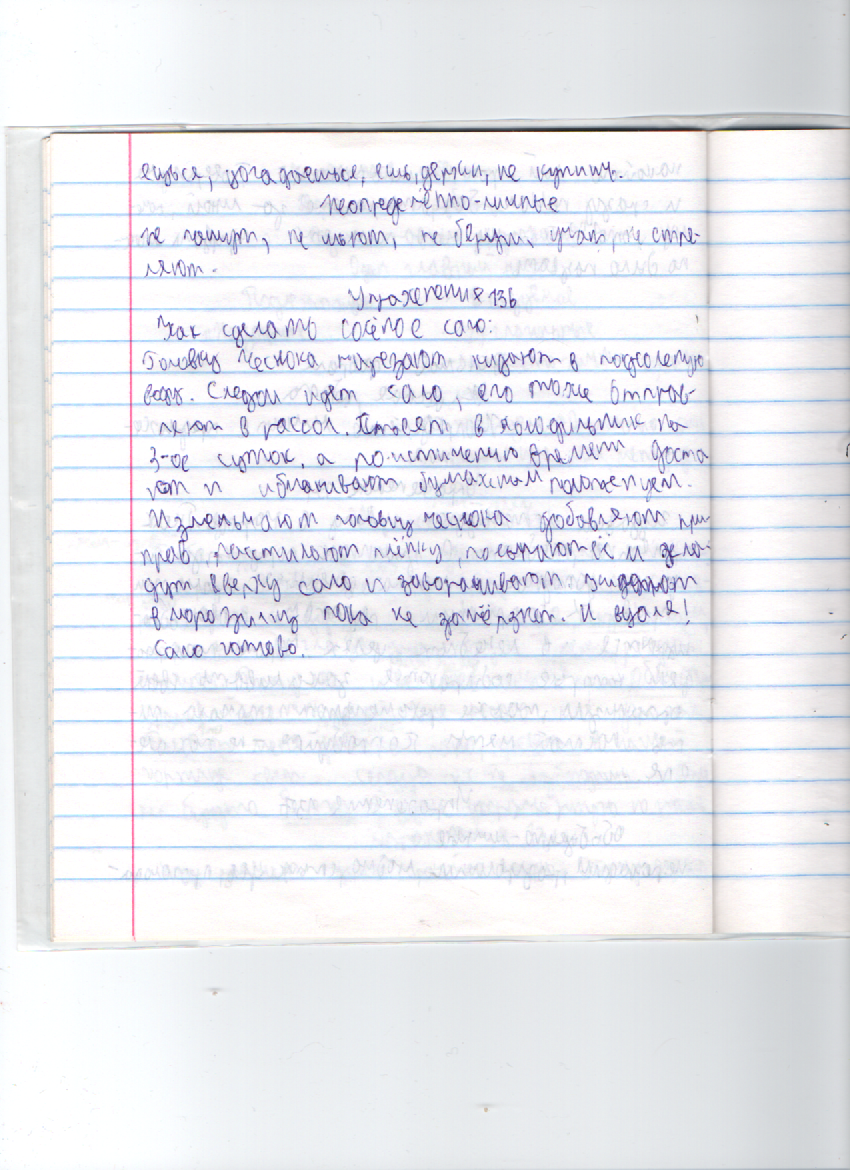 ешься, догадаешься, ешь, держи, не купишь.
Неопределённо-личные
не пашут, не моют, не берут, учат, не стре-
ляют.
Упражнения 136
Как сделать солёное сало:
Головку чеснока нарезают кидают в подсоленую
воду. Следом идет сало, его тоже отправ-
ляют в рассол. Ставят в холодильник на
3-ое суток, а по истичению времяни доста
ют и обмакивают бумажным полотенцем.
Измельчают головку чеснока добавляют при
прав, расстилают плёнку, посыпают её и
вверху сало и заворачивают
в морозилку пока не замёрзнет. И вуаля!
Сало готово.